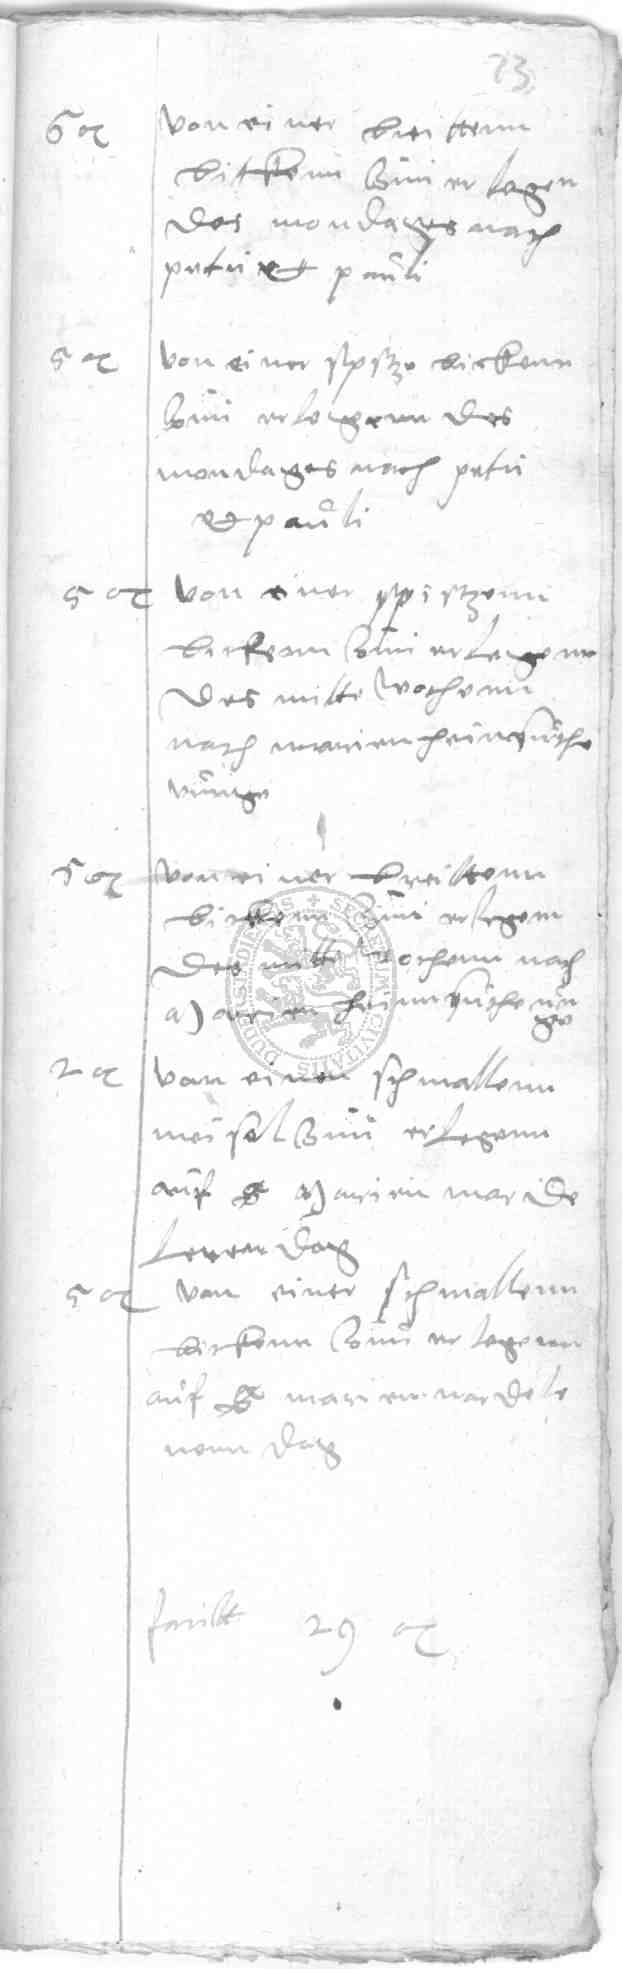 73
6 ₰ von einer breittenn
bickenn zůu erlegen
des mondages nach
petri et pauli
5 ₰ von einer spitze bickenn
zůu erlegenn des
mondages nach petri
et pauli
5 ₰ von einer spitzenn
bickenn zůu erlegenn
des mitte wochenn
nach marien heimsůche
nůnge
5 ₰ von einer breittenn
bickenn zůu erlegenn
des mitte wochenn nach
Marien heimsůchenůn
ge
2 ₰ von einen schmallenn
meisel zůu erlegenn
aůf Marien mar de
lenen dag
5 ₰ von einer schmallenn
bickenn zůu erlegenn
aůf marien mardele
nenn dag
facitt 29 ₰
SECRETUM CIVITATIS DUDERSTADIENSIS